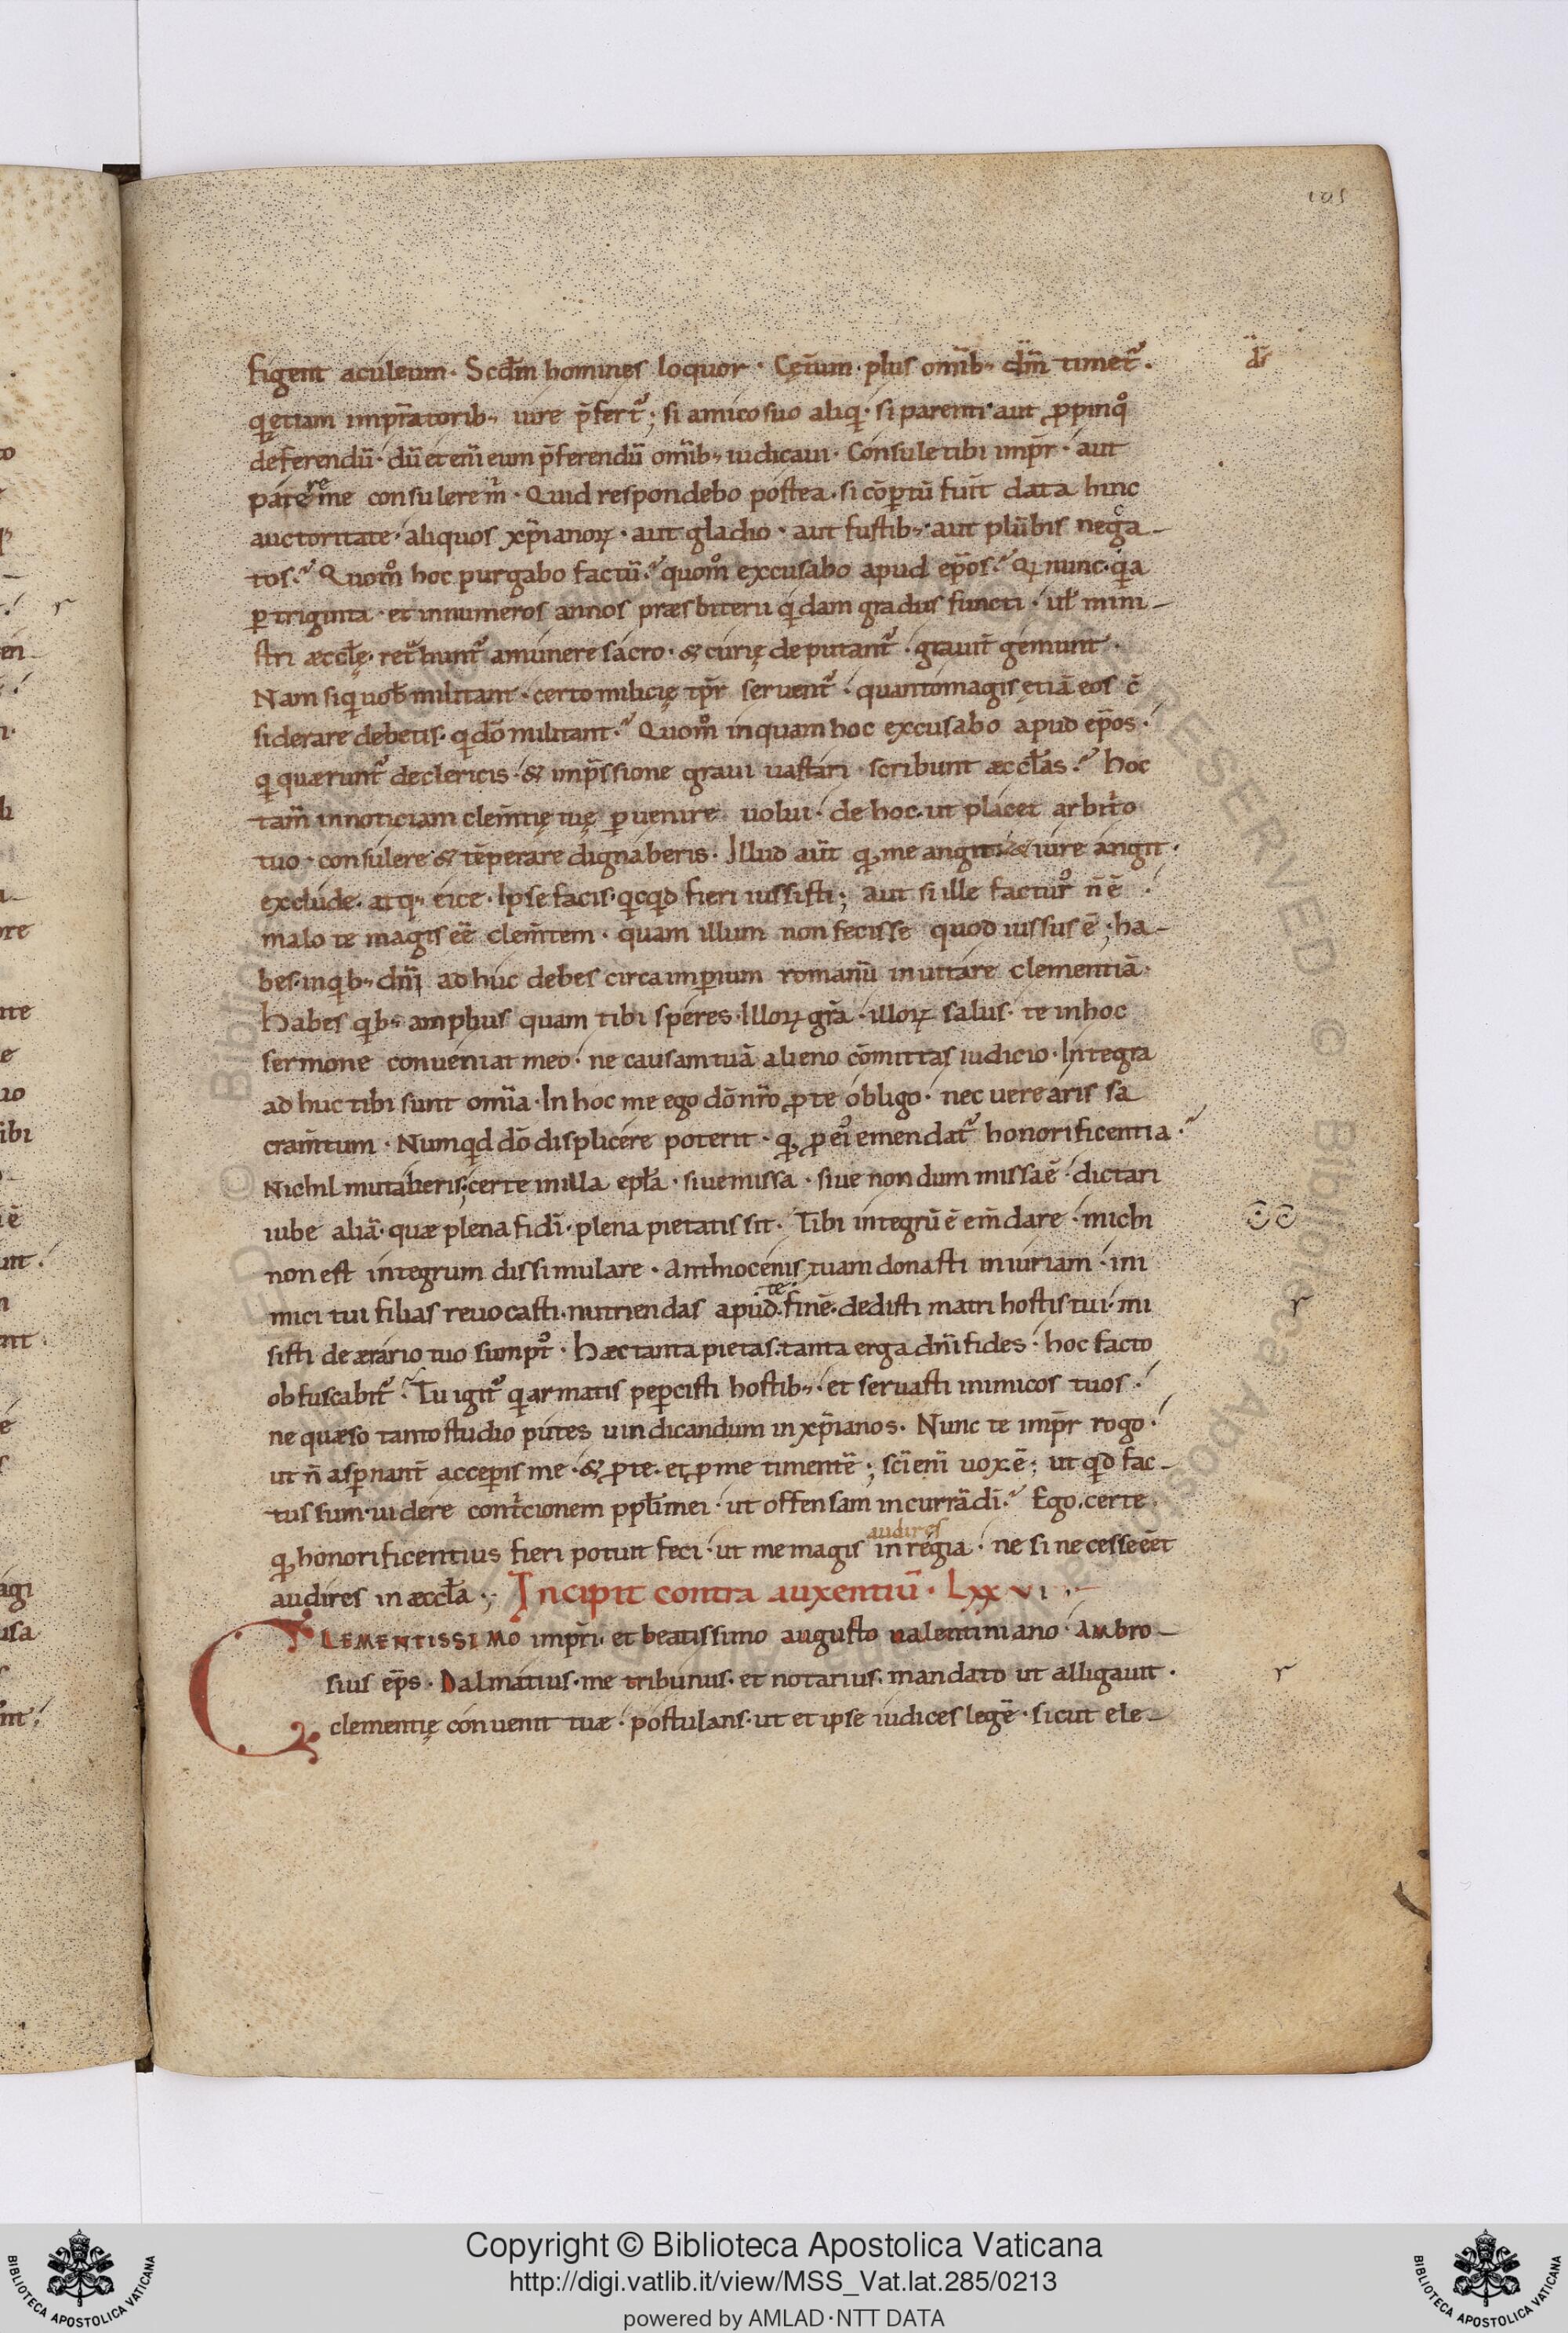 105
figent aculeum· Scdm̄ homines loquor· Cęteꝝum· plus omib; dm̄ timet᷑· ds̄
qui etiam impr̄atorib; iure p̄fert᷑; si amico suo aliqi· si parenti· aut ꝓpinqͦ
deferendū· dū et enī eum p̄ferendū omīb; iudicaui· Consule tibi impr̄· aut
patere me consulere m̄· Quid respondebo postea· si cōꝑtū fuīt data hinc
auctoritate· aliquos xp̄ianoꝝ· aut gladio· aut fustib;· aut plūbis neca-
tos? Quom̊ hoc purgabo factū? quom̊ excusabo apud ep̄os? Qi nunc· qia
ꝑ triginta· et innumeros annos præsbiterii qidam gradus functi· ul̄ mini-
stri æccl̄ę· ret᷑hunt᷑ a munere sacro· & curię deputant᷑· grauit̄ gemunt·
Nam si qi uob̄ militant· certo milicię tp̄r seruent᷑· quanto magis etiā eos c̄
siderare debetis· qi dō militant? Quom̊ inquam hoc excusabo apud ep̄os·
qi quærunt᷑ de clericis· & imp̄ssione graui uastari scribunt æccl̄as? hoc
tam̄ in noticiam clem̄tię tuę ꝑuenire uolui· de hoc· ut placet arbit̄o
tuo· consulere & tēperare dignaberis· Illud aūt qd̄ me angit & iure angit·
exclude· atq; eice· Ipse facis· qicqid fieri iussisti; aut si ille factur᷒ n̄ ē
malo te magis eē clem̄tem· quam illum non fecisse quod iussus ē; ha-
bes· in qib; dn̄i adhuc debes circa imꝑium romanū inuitare clementiā·
Habes· qib; amplius quam tibi speres· Illoꝝ gr̄a· illoꝝ salus· te in hoc
sermone conueniat meo· ne causam tuā alieno cōmittas iudicio· Integra
adhuc tibi sunt omīa· In hoc me ego dō nr̄o ꝓ te obligo· nec uerearis sa
cram̄tum· Numqid dō displicere poterit· qd̄ ꝓ ei᷒ emendat᷑ honorificentia?
Nichil mutaueris; certe in illa epl̄a· siue missa· siue nondum missa ē· dictari
iube aliā· quæ plena fidī· plena pietatis sit· Tibi integrū ē em̄dare· michi
non est integrum dissimulare· Anthiocenis tuam donasti iniuriam· ini
mici tui filias reuocasti· nutriendas apud te finē· dedisti matri hostis tui· mi
sisti de ærario tuo sumpt᷒· Hæc tanta pietas· tanta erga dn̄i fides· hoc facto
obfuscabit᷑? Tu igit᷑ qi armatis peꝑcisti hostib;· et seruasti inimicos tuos·
ne quæso tanto studio putes uindicandum in xp̄ianos· Nunc te impr̄ rogo·
ut n̄ asꝑnant̄ acceꝑis me· & ꝓ te· et ꝓ me timentē; scī enī uox ē; ut qid fac-
tus sum· uidere cont̄cionem ppl̄i mei· ut offensam incurrā dī? Ego· certe
qd̄ honorificentius fieri potuit feci· ut me magis audires in regia· ne si necesse eēt
audires in æccl̄a·; Incipit contra auxentiū· Lxxvi·
CLEMENTISSIMO impr̄i· et beatissimo augusto ualentiniano· Ambro-
sius ep̄s· Dalmatius· me tribunus· et notarius· mandato ut alligauit·
clementię conuenit tuæ· postulans· ut et ipse iudices legē· sicut ele-
Copyright © Biblioteca Apostolica Vaticana
http://digi.vatlib.it/view/MSS_Vat.lat.285/0213
powered by AMLAD·NTT DATA